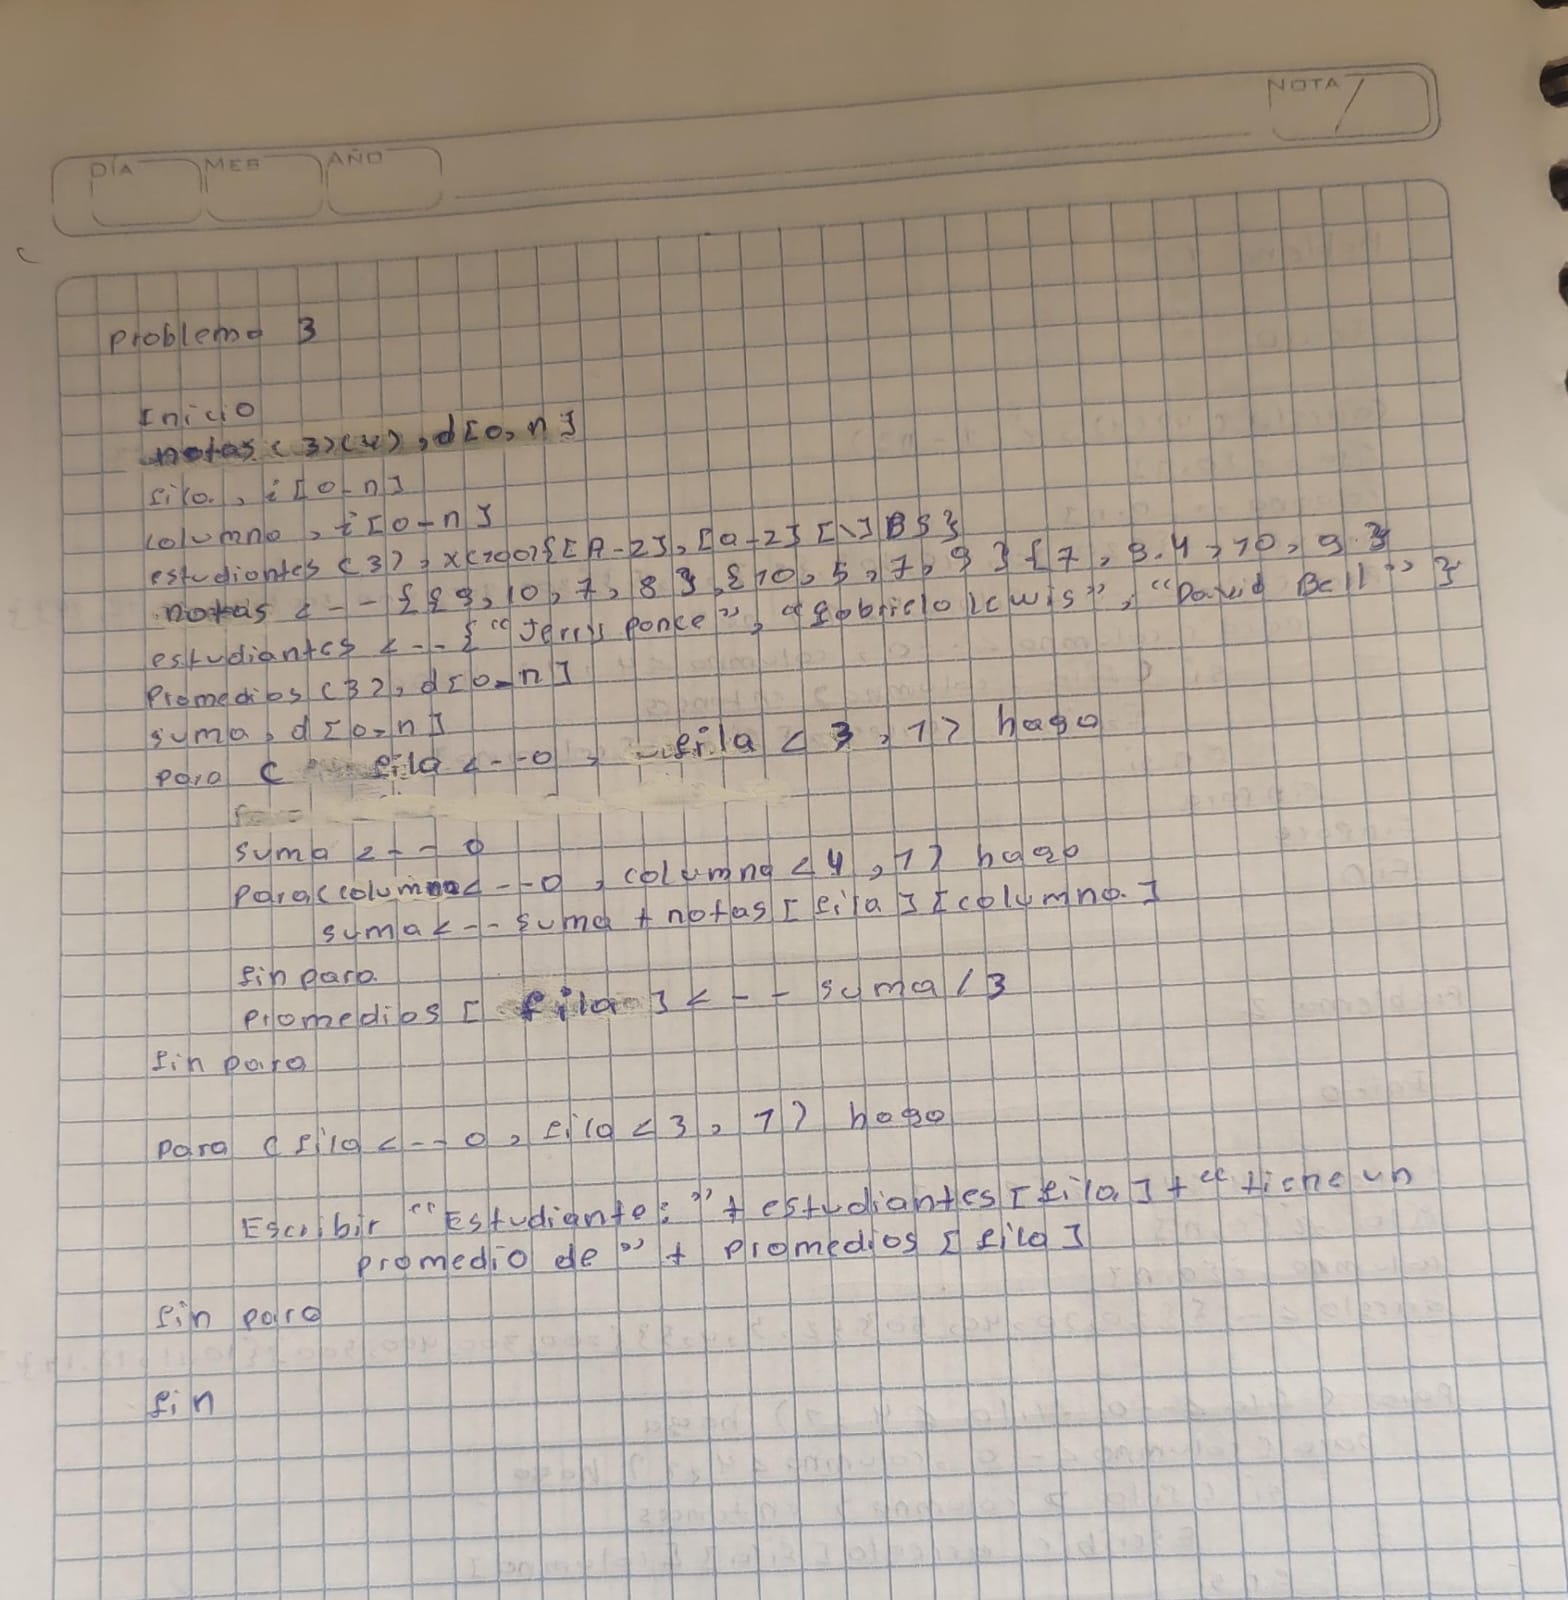 DÍA MES AÑO NOTA
Problema 3
Inicio
notas (3)(4), d[0, n]
fila, i[0-n]
columna, i[0-n]
estudiantes (3), x(200){[A-Z], [a-z] [\] BS}
notas <-- {{9, 10, 7, 8}, {10, 5, 7, 9} {7, 9.4, 10, 9}
estudiantes <-- {"Jerry ponce", "gabriela lewis", "David Bell"}
Promedios (3), d[0-n]
suma, d[0-n]
para ( fila <--0, fila < 3, 1) haga
suma <-- 0
para(columna<--0, columna < 4, 1) haga
suma <-- suma + notas [fila] [columna]
fin para
Promedios [ fila ] <-- suma / 3
fin para
para (fila <-- 0, fila < 3, 1) haga
Escribir "Estudiante: " + estudiantes [fila] + " tiene un
promedio de " + promedios [fila]
fin para
fin